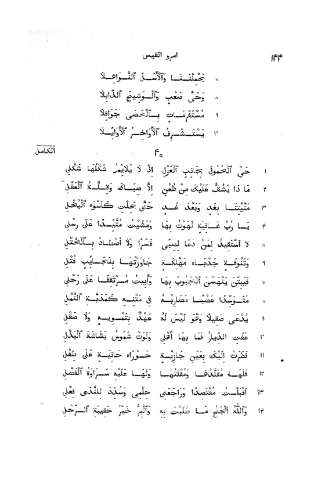 امرو القيس ١٤٤
يحملننا والأسل النواهلا
وحي صعب والوشيج الذابلا
مستفرمات بالحصى جوافلا
يستشرف الأواخر الأوائلا
٤٠ الكامل
١ حي الحمول بجانب العزل إذ لا يلائم شكلها شكلي
٢ ما ذا يشق عليك من ظعن إلا صباك وقلة العقل
٣ منيتنا بغد وبعد غد حتى بخلت كأسوء البخل
٤ يا رب غانية لهوت بها ومشيت متئدا على رسلي
٥ لا أستقيد لمن دعا لصبى قسرا ولا أصطاد بالختل
٦ وتنوفة جدباء مهلكة جاوزتها بنجائب فتل
٧ فيبتن ينهسن الجبوب بها وأبيت مرتفقا على رحلي
٨ متوسدا عضبا مضاربه في متنه كمدبة النمل
٩ يدعى صقيلا وهو ليس له عهد بتمويه ولا صقل
١٠ عفت الديار فما بها أهلي ولوت شموس بشاشة البذل
١١ نظرت إليك بعين جازئة حوراء حانية على طفل
١٢ فلها مقلدها ومقلتها ولها عليه سراوة الفضل
١٣ أقبلت مقتصدا وراجعني حلمي وسدد للندى فعلي
١٤ والله أنجح ما طلبت به والبر خير حقيبة الرحل